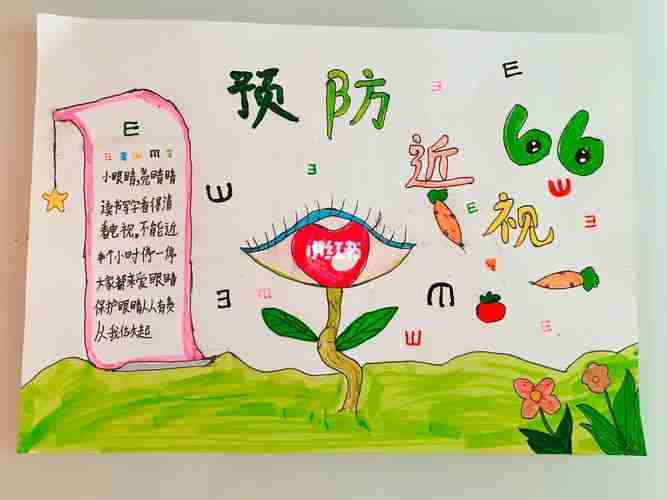 预防
近视
66
E
小眼睛,亮睛睛
读书写字看得清
看电视,不能近
半个小时停一停
大家都来爱眼睛
保护眼睛人人有责
从我做起
小红书